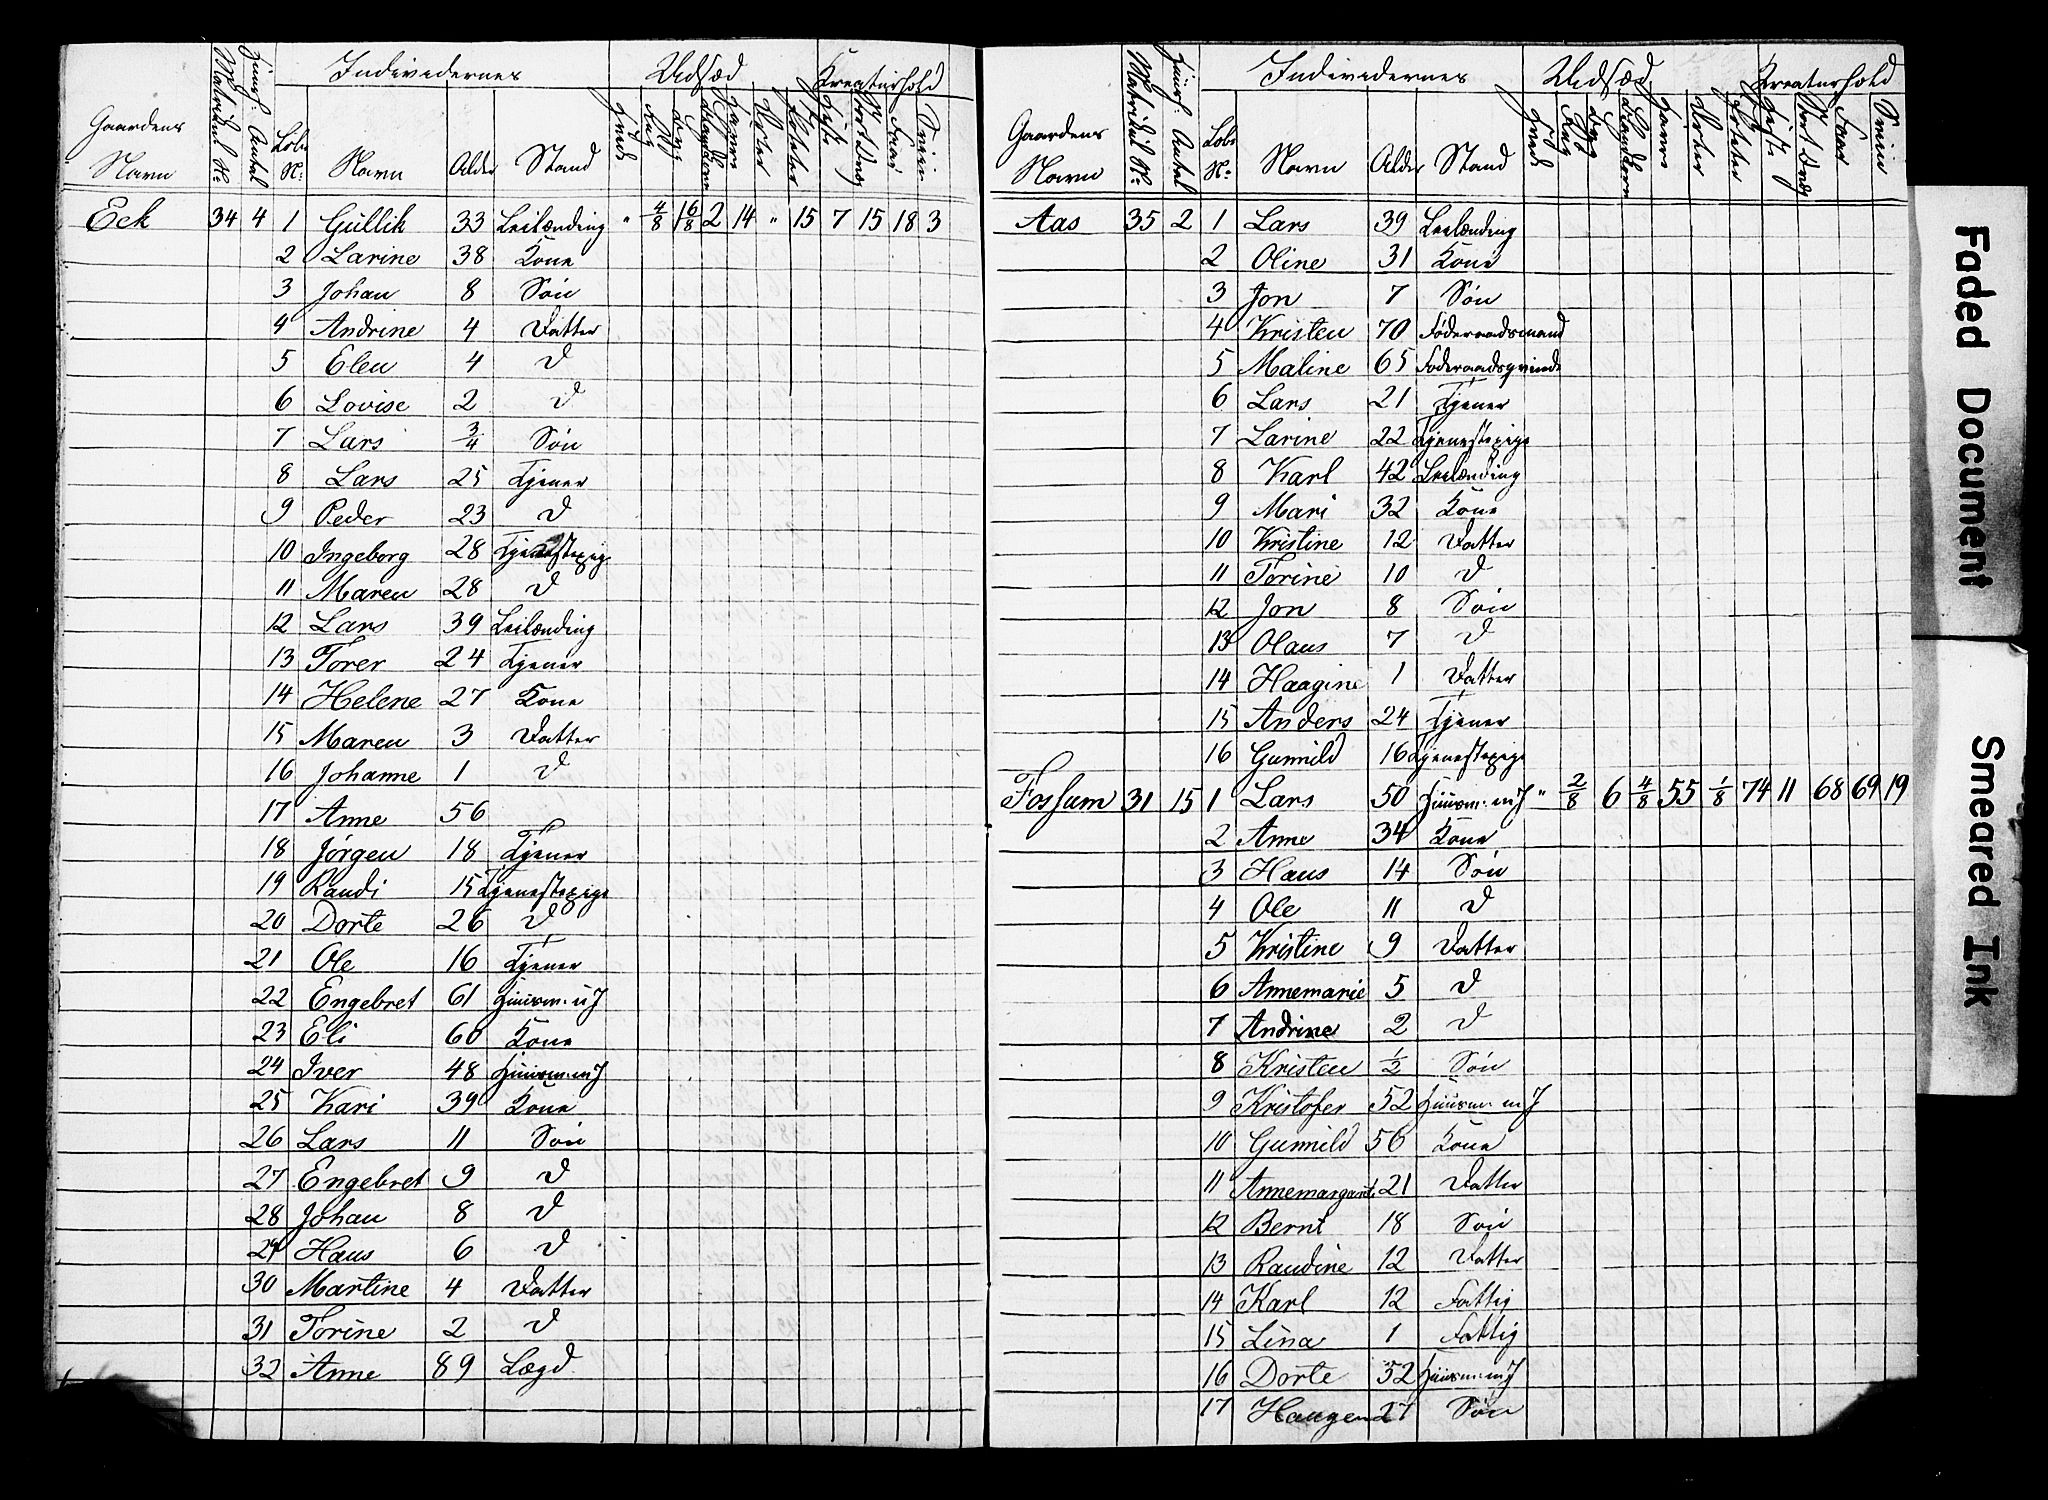 Individernes Udsæd Kreaturhold
Gaardens Navn Matricul No Huush. Antal Løbe No: Navn Alder Stand Hvede Rug Byg Blandkorn Havre Erter Poteter Heste Stort Qvæg Faar Sviin
Eek 34 4 1 Gullik 33 Leilænding " 4/8 1 6/8 2 14 " 15 7 15 18 3
2 Larine 38 Kone
3 Johan 8 Søn
4 Andrine 4 Datter
5 Elen 4 D
6 Lovise 2 D
7 Lars 3/4 Søn
8 Lars 25 Tjener
9 Peder 23 D
10 Ingeborg 28 Tjenestepige
11 Maren 28 D
12 Lars 39 Leilænding
13 Torer 24 Tjener
14 Helene 27 Kone
15 Maren 3 Datter
16 Johanne 1 D
17 Anne 56
18 Jørgen 18 Tjener
19 Randi 15 Tjenestepige
20 Dorte 26 D
21 Ole 16 Tjener
22 Engebret 61 Huusm. u J
23 Eli 60 Kone
24 Iver 48 Huusm. m J
25 Kari 39 Kone
26 Lars 11 Søn
27 Engebret 9 D
28 Johan 8 D
29 Hans 6 D
30 Martine 4 Datter
31 Torine 2 D
32 Anne 89 Lægd
Individernes Udsæd Kreaturhold
Gaardens Navn Matricul No Huush. Antal Løbe No: Navn Alder Stand Hvede Rug Byg Blandkorn Havre Erter Poteter Heste Stort Qvæg Faar Sviin
Aas 35 2 1 Lars 39 Leilænding
2 Oline 31 Kone
3 Jon 7 Søn
4 Kristen 70 Føderaadsmand
5 Maline 65 Føderaadsqvinde
6 Lars 21 Tjener
7 Larine 22 Tjenestepige
8 Karl 42 Leilænding
9 Mari 32 Kone
10 Kristine 12 Datter
11 Torine 10 D
12 Jon 8 Søn
13 Olaus 7 D
14 Haagine 1 Datter
15 Anders 24 Tjener
16 Gunnild 16 Tjenestepige
Fossum 31 15 1 Lars 50 Huusm. m J " 2/8 6 4/8 55 1/8 74 11 68 69 19
2 Anne 34 Kone
3 Hans 14 Søn
4 Ole 11 D
5 Kristine 9 Datter
6 Annemarie 5 D
7 Andrine 2 D
8 Kristen 1/2 Søn
9 Kristofer 52 Huusm. m J
10 Gunnild 56 Kone
11 Annemargarit 21 Datter
12 Bernt 18 Søn
13 Randine 12 Datter
14 Karl 12 Fattig
15 Lina 1 Fattig
16 Dorte 52 Huusm. m J
17 Haagen 27 Søn
Faded Document
Smeared Ink